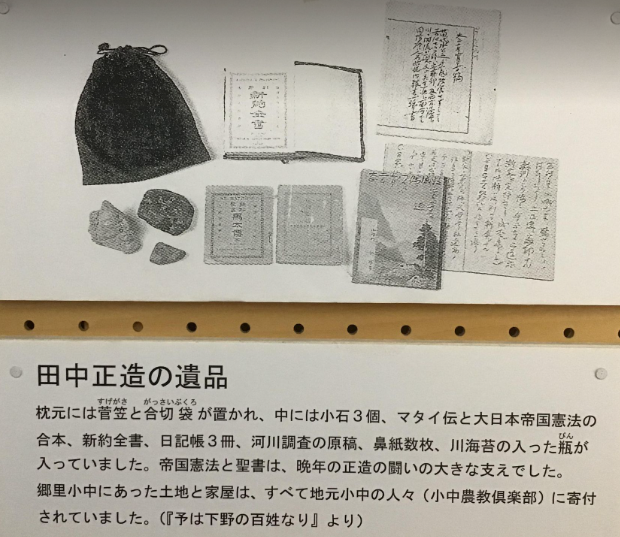 新約全書
馬太傳
田中正造の遺品
すげがさ がっさいぶくろ
枕元には菅笠と合切袋が置かれ、中には小石3個、マタイ伝と大日本帝国憲法の
びん
合本、新約全書、日記帳3冊、河川調査の原稿、鼻紙数枚、川海苔の入った瓶が
入っていました。帝国憲法と聖書は、晩年の正造の闘いの大きな支えでした。
郷里小中にあった土地と家屋は、すべて地元小中の人々(小中農教倶楽部)に寄付
されていました。(『予は下野の百姓なり』より)